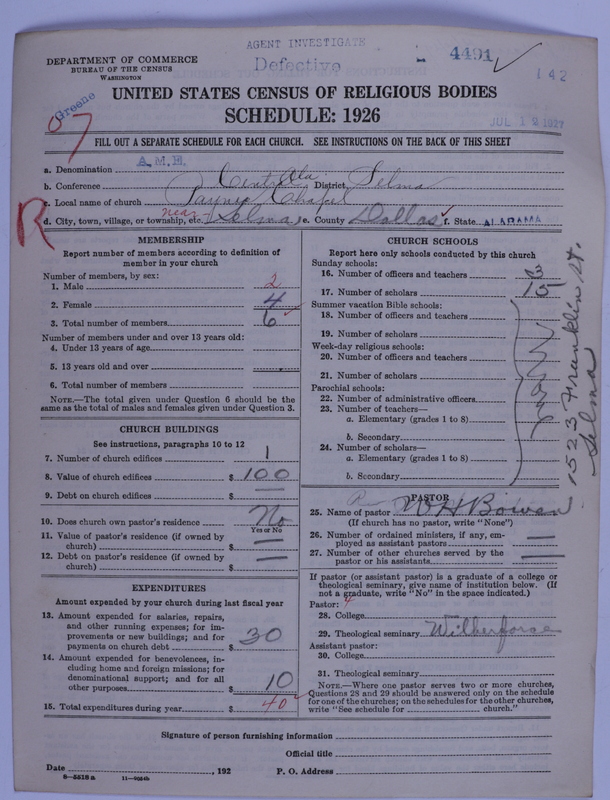 AGENT INVESTIGATE
DEPARTMENT OF COMMERCE
BUREAU OF THE CENSUS
WASHINGTON
Defective
4491 ✓
142
Greene
07
UNITED STATES CENSUS OF RELIGIOUS BODIES
SCHEDULE: 1926
JUL 12 1927
FILL OUT A SEPARATE SCHEDULE FOR EACH CHURCH. SEE INSTRUCTIONS ON THE BACK OF THIS SHEET
a. Denomination A.M.E.
b. Conference Central Ala District, Selma
c. Local name of church Paynes Chapel
R
d. City, town, village, or township, etc. near Selma e. County Dallas f. State ALABAMA
MEMBERSHIP
Report number of members according to definition of
member in your church
Number of members, by sex:
1. Male 2
2. Female 4
3. Total number of members 6 ✓
Number of members under and over 13 years old:
4. Under 13 years of age
5. 13 years old and over
6. Total number of members
NOTE.—The total given under Question 6 should be
same as the total of males and females given under Question 3.
CHURCH BUILDINGS
See instructions, paragraphs 10 to 12
7. Number of church edifices 1
8. Value of church edifices $ 100
9. Debt on church edifices $ —
10. Does church own pastor's residence No
Yes or No
11. Value of pastor's residence (if owned by
church) $ —
12. Debt on pastor's residence (if owned by
church) $ —
EXPENDITURES
Amount expended by your church during last fiscal year
13. Amount expended for salaries, repairs,
and other running expenses; for im-
provements or new buildings; and for
payments on church debt $ 30
14. Amount expended for benevolences, in-
cluding home and foreign missions; for
denominational support; and for all
other purposes $ 10
15. Total expenditures during year $ 40 ✓
CHURCH SCHOOLS
Report here only schools conducted by this church
Sunday schools:
16. Number of officers and teachers 3
17. Number of scholars 15
Summer vacation Bible schools:
18. Number of officers and teachers
19. Number of scholars
Week-day religious schools:
20. Number of officers and teachers
21. Number of scholars
Parochial schools:
22. Number of administrative officers
23. Number of teachers—
a. Elementary (grades 1 to 8)
b. Secondary
24. Number of scholars—
a. Elementary (grades 1 to 8)
b. Secondary
PASTOR
25. Name of pastor W H Bowen
(If church has no pastor, write "None")
26. Number of ordained ministers, if any, em-
ployed as assistant pastors —
27. Number of other churches served by the
pastor or his assistants —
1523 Franklin St.
Selma
If pastor (or assistant pastor) is a graduate of a college or
theological seminary, give name of institution below. (If
not a graduate, write "No" in the space indicated.)
Pastor:
28. College
29. Theological seminary Wilberforce
Assistant pastor:
30. College
31. Theological seminary
NOTE.—Where one pastor serves two or more churches,
Questions 28 and 29 should be answered only on the schedule
for one of the churches; on the schedules for the other churches,
write "See schedule for church."
Signature of person furnishing information
Official title
Date , 192 P. O. Address
8—5518 a